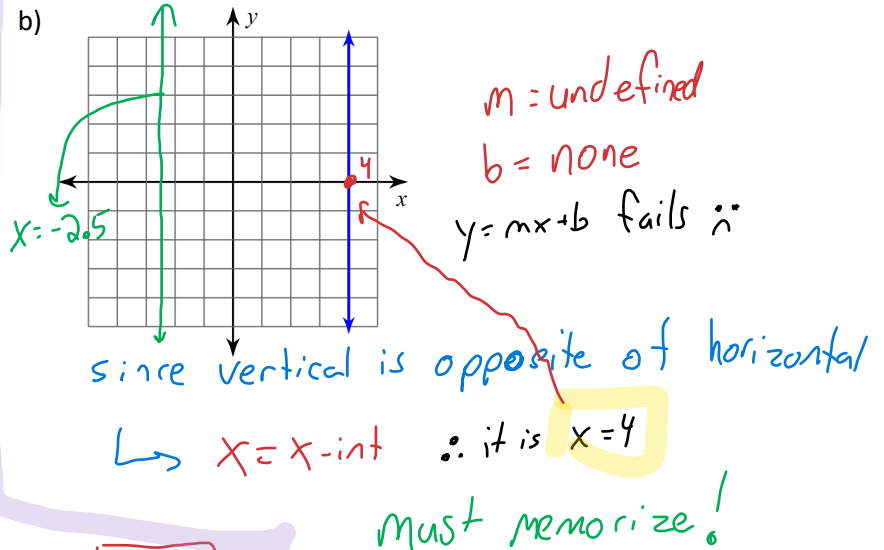 b)
y
4
x
x=-2.5
m = undefined
b = none
y=mx+b fails :(
since vertical is opposite of horizontal
↳ x = x-int ∴ it is x=4
must memorize!